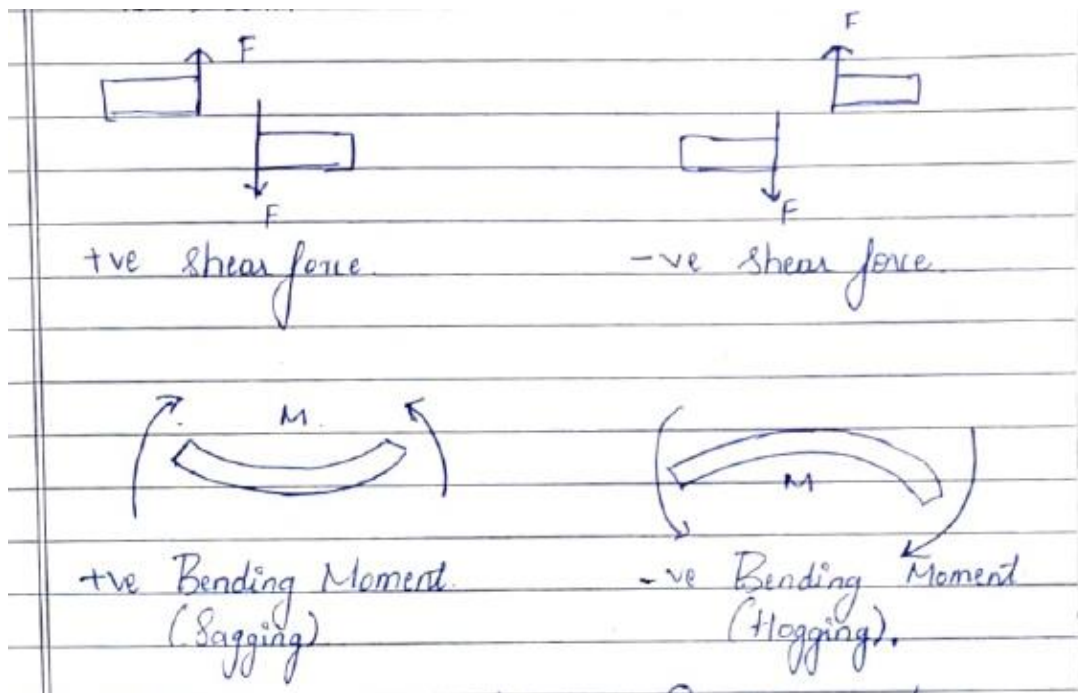 F
F
F
F
+ve Shear force.
-ve Shear force.
M
M
+ve Bending Moment.
(Sagging)
-ve Bending Moment
(Hogging).